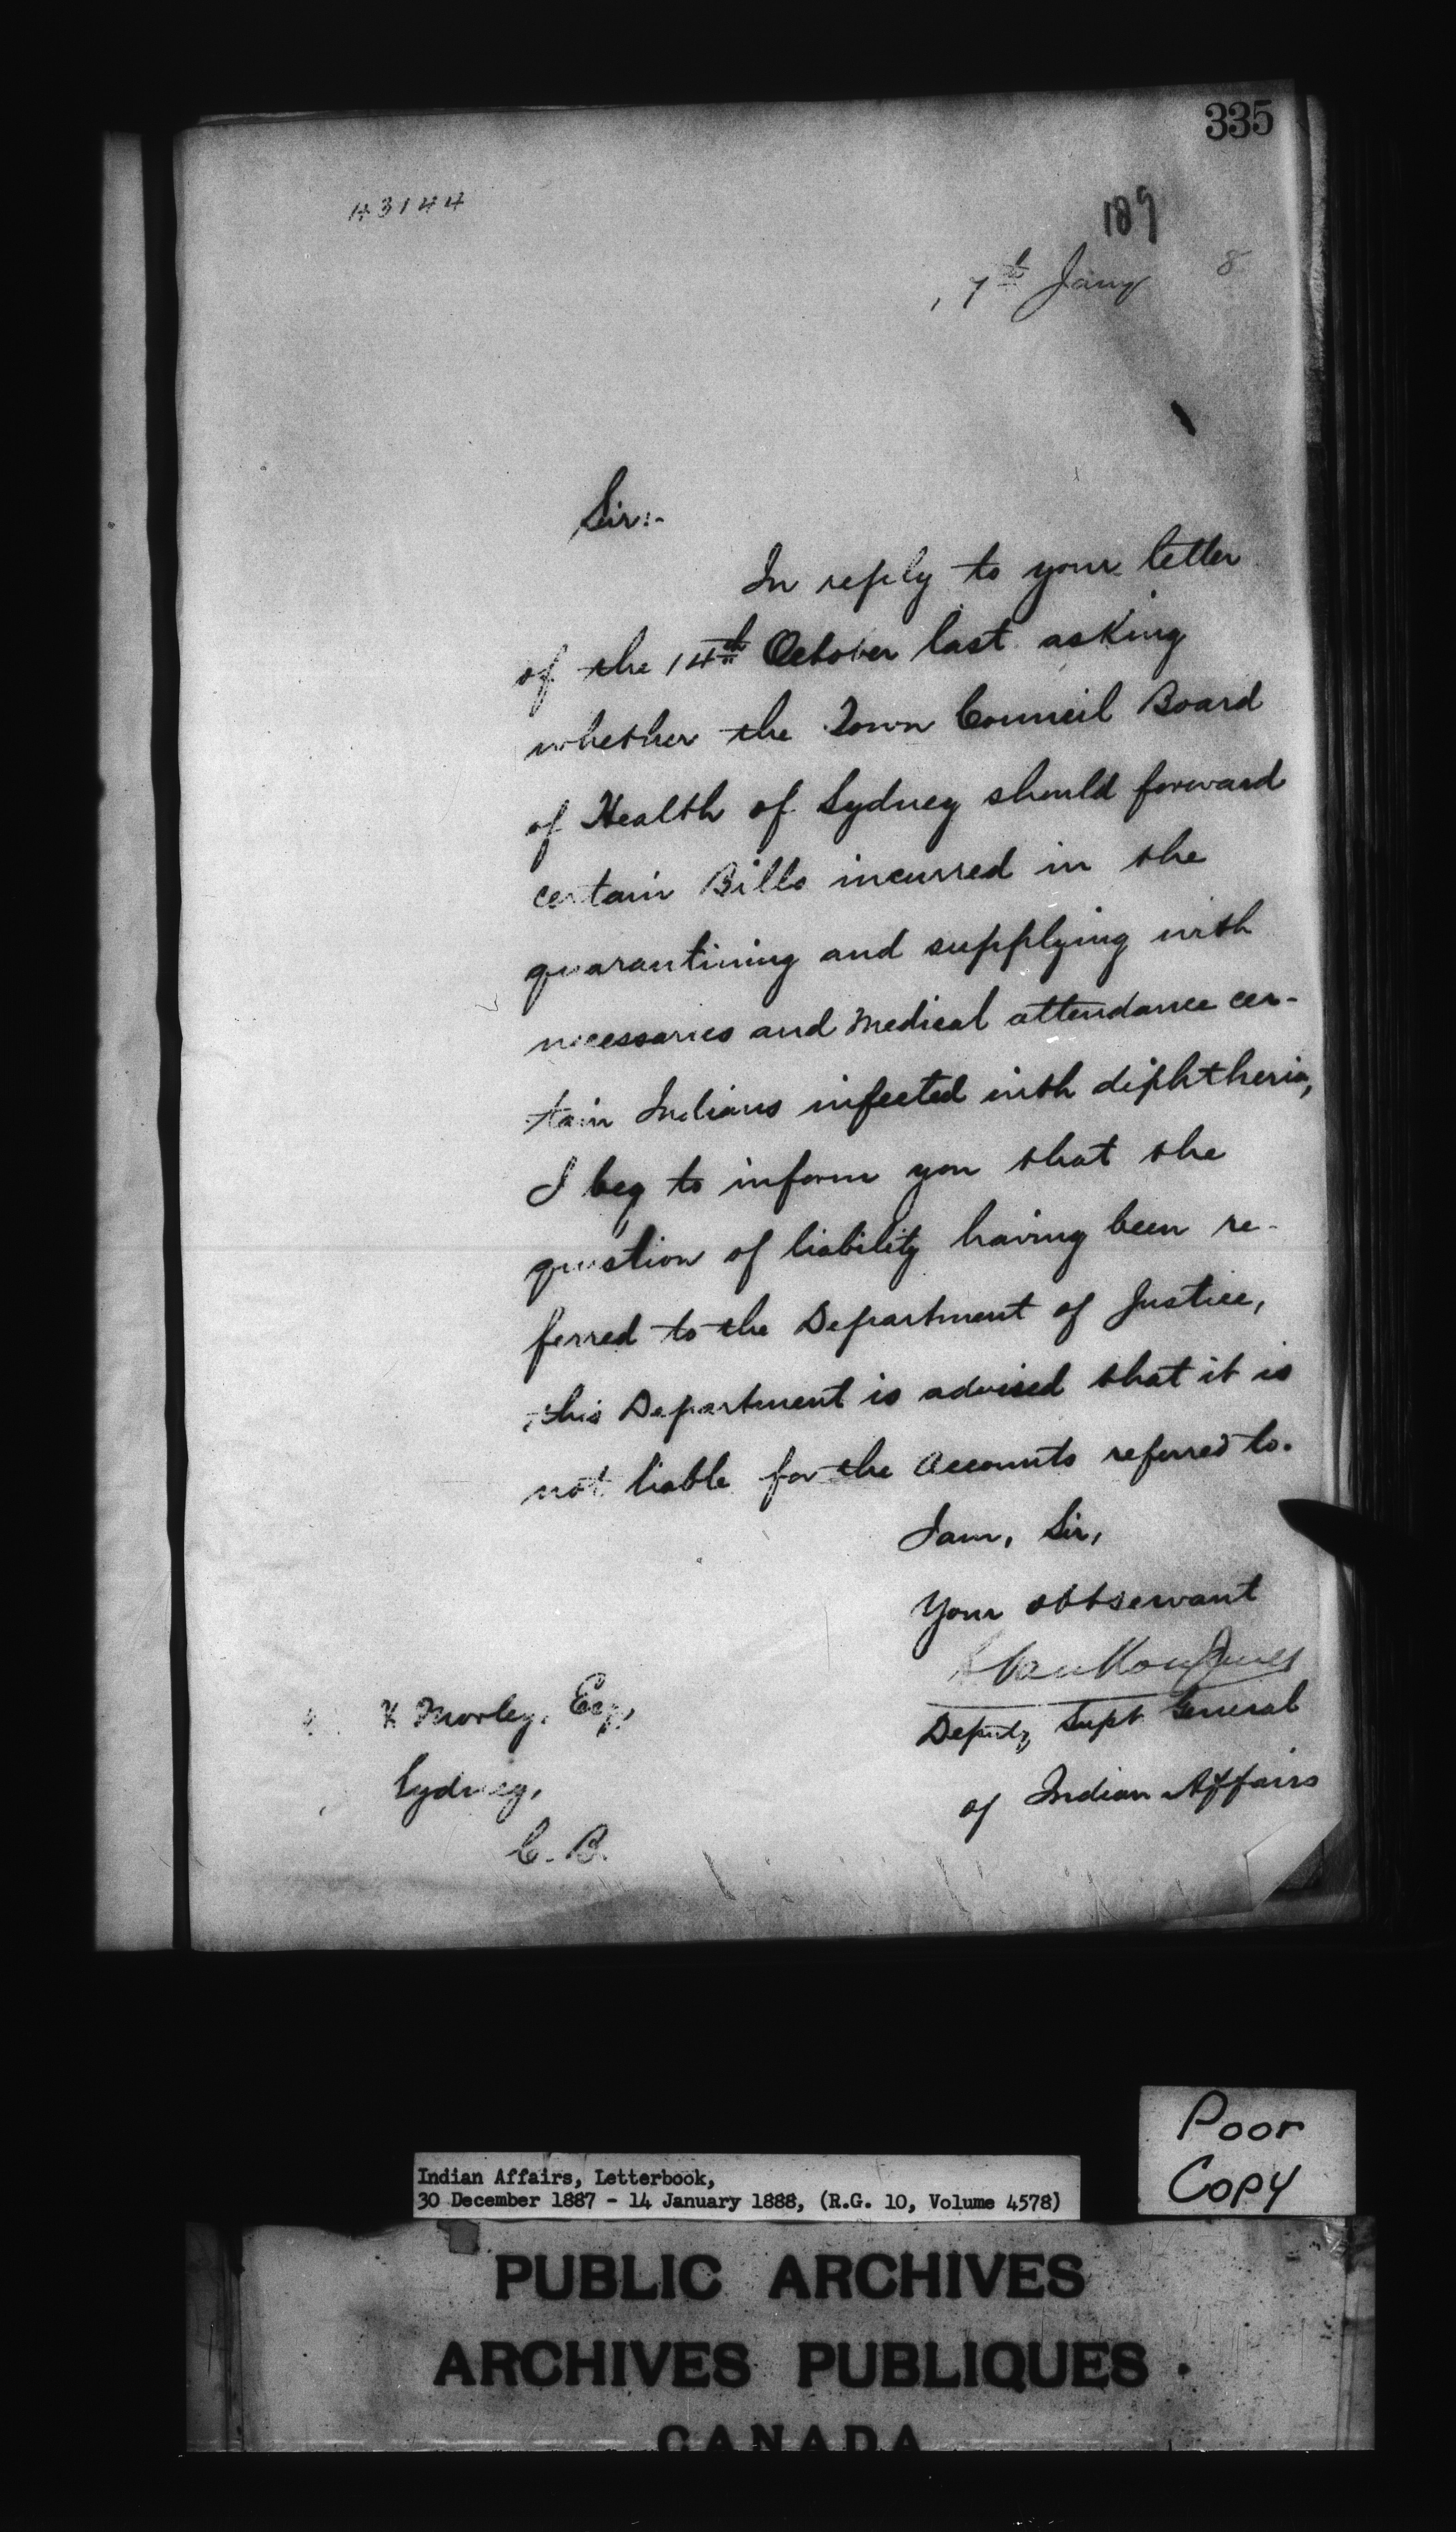 335
43144
189
7th Jany 8
Sir:-
In reply to your letter
of the 14th October last asking
whether the Town Council Board
of Health of Sydney should forward
certain Bills incurred in the
quarantining and supplying with
necessaries and medical attendance cer-
tain Indians infected with diphtheria,
I beg to inform you that the
question of liability having been re-
ferred to the Department of Justice,
this Department is advised that it is
not liable for the Accounts referred to.
I am, Sir,
Your obt servant
L VanKoughnet
Deputy Supt General
of Indian Affairs
Morley, Esq,
Sydney,
C. B.
Poor
Copy
Indian Affairs, Letterbook,
30 December 1887 - 14 January 1888, (R.G. 10, Volume 4578)
PUBLIC ARCHIVES
ARCHIVES PUBLIQUES
CANADA